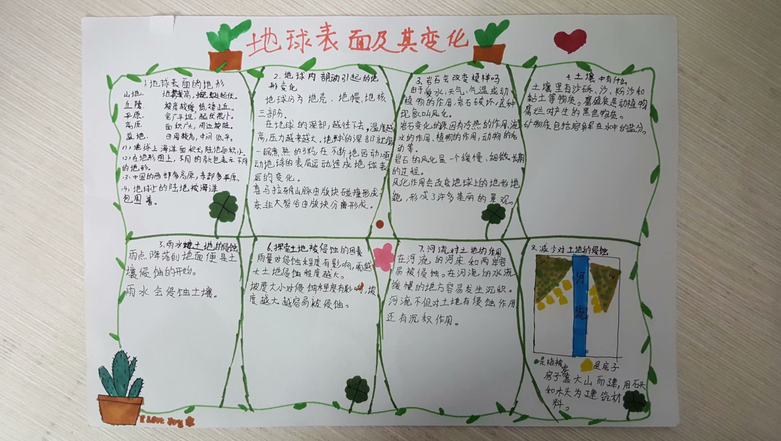 地球表面及其变化
1.地球表面的地形
山地:
丘陵:
平原:
高原:
盆地:
(1)地球上海洋面积大陆地面积小。
(2)在地形图上,不同的颜色表示不同
的地形。
(3)中国的西部多高原,东部多平原。
(4)地球上的陆地被海洋
包围着。
2.地球内部运动引起的地
形变化
地球分为地壳、地幔、地核
三部分。
在地球的深部,越往下去,温度越
高,压力越来越大,地球的深部就像
一锅煮热的粥,在不断地运动,运
动地球的表层运动造成地球表
层的变化。
喜马拉雅山脉由版块碰撞形成,
东非大裂谷由版块分离形成。
3.岩石会改变模样吗
植物的作用,岩石破坏,这种
现象叫风化。
岩石变化的原因有冷热的作用,流
水的作用,植物的作用,动物的活
动等。
岩石的风化是一个缓慢、
的过程。
风化作用会改变地球上的地形地
貌,形成了许多美丽的景观。
4.土壤中有什么
土壤里有沙砾、沙、粉沙和
黏土等物质。腐殖质是动植物
腐烂对产生的黑色物质。
5.雨水对土地的侵蚀
雨点降落到地面便是土
壤侵蚀的开始。
雨水会侵蚀土壤。
6.探索土地被侵蚀的因素
雨量对侵蚀程度有影响,雨越
大土地侵蚀程度越大。
坡度大小对侵蚀程度有影响,坡
度越大越容易被侵蚀。
7.河流对土地的作用
在河流,的河床和两岸容
易被侵蚀。在河流的水流
缓慢的地方容易发生沉积。
河流不但对土地有侵蚀作用
还有沉积作用。
8.减少对土地的侵蚀
河
流
是植被
是房子
房子靠大山而建,用石头
和木头为建筑材
料。
I Love You